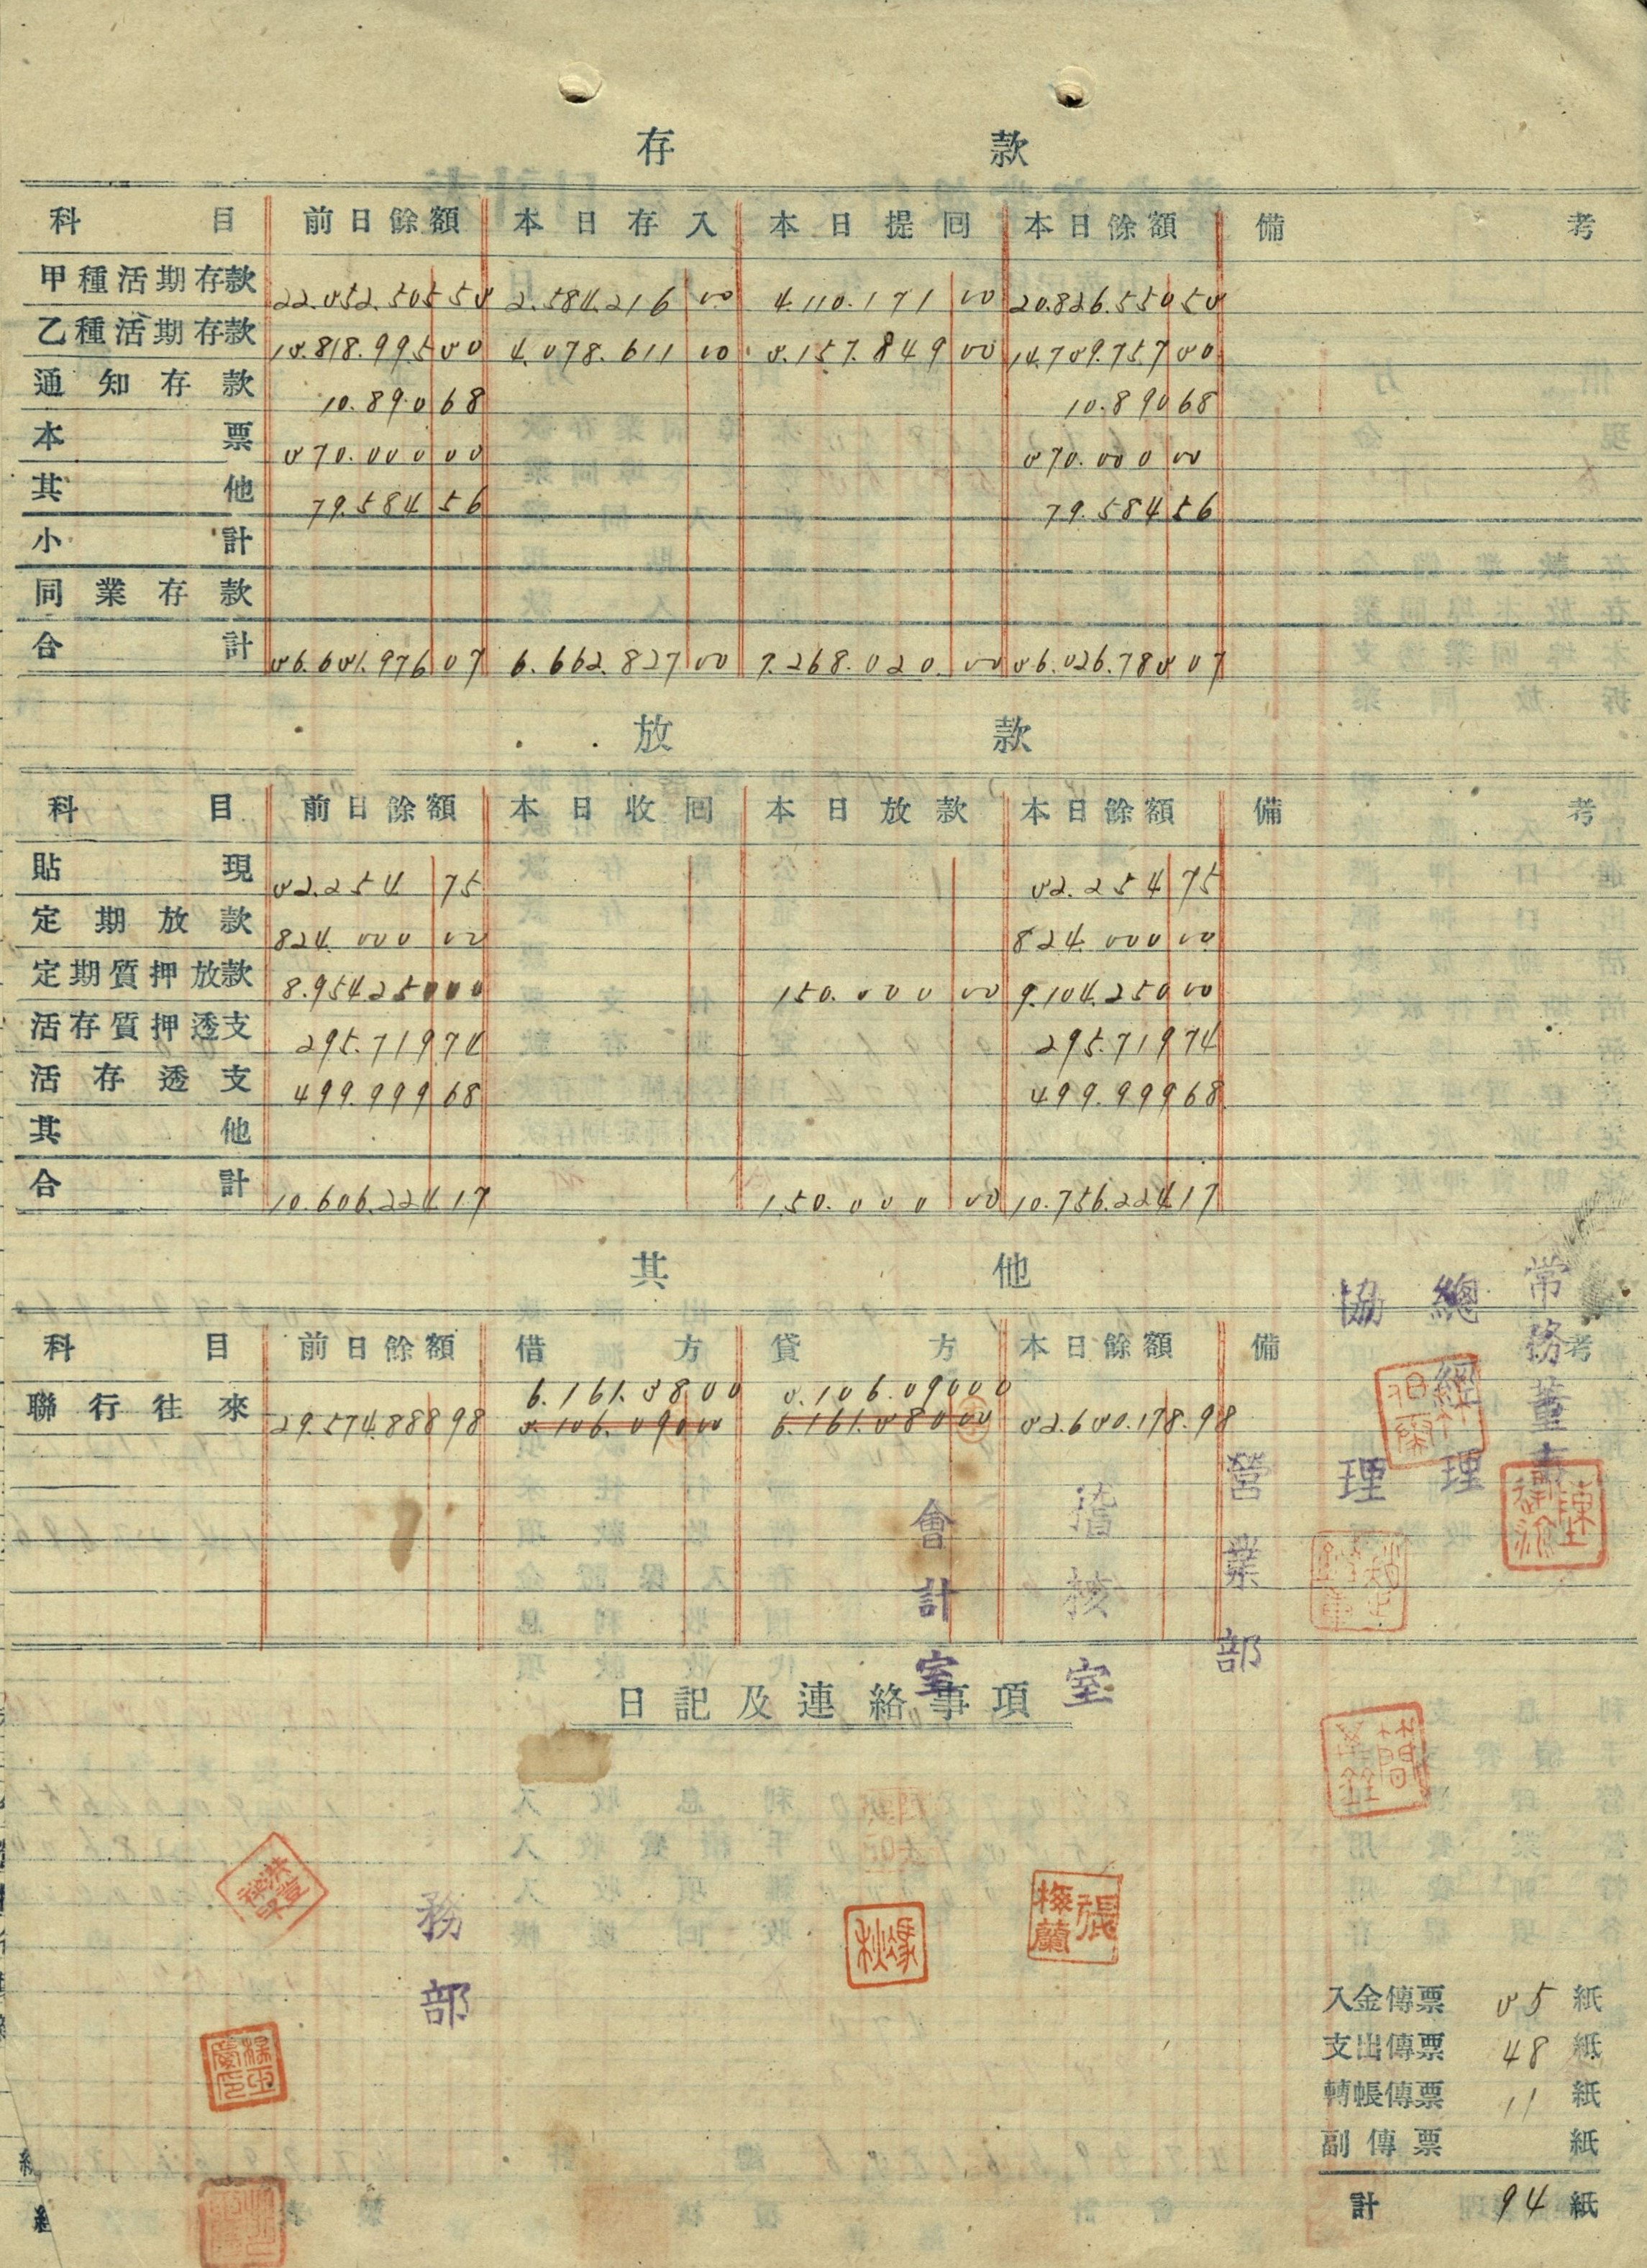 存款
科目 前日餘額 本日存入 本日提回 本日餘額 備考
甲種活期存款 22.352.505 83 2.584.216 00 4.110.171 00 20.826.550 83
乙種活期存款 13.818.995 00 4.078.611 00 3.157.849 00 14.739.757 00
通知存款 10.890 68 10.890 68
本票 370.000 00 370.000 00
其他 79.584 56 79.584 56
小計
同業存款
合計 36.631.976 07 6.662.827 00 7.268.020 00 36.026.783 07
放款
科目 前日餘額 本日收回 本日放款 本日餘額 備考
貼現 32.254 75 32.254 75
定期放款 824.000 00 824.000 00
定期質押放款 8.954.250 00 150.000 00 9.104.250 00
活存質押透支 295.719 74 295.719 74
活存透支 499.999 68 499.999 68
其他
合計 10.606.224 17 150.000 00 10.756.224 17
其他
科目 前日餘額 借方 貸方 本日餘額 備考
6.161.380 00 3.106.090 00
聯行往來 29.574.888 98 3.106.090 00 6.161.380 00 32.630.178.98
常務董事
總經理
協理
營業部
稽核室
會計室
日記及連絡事項
務部
張梅蘭
入金傳票 35 紙
支出傳票 48 紙
轉帳傳票 11 紙
副傳票 紙
計 94 紙